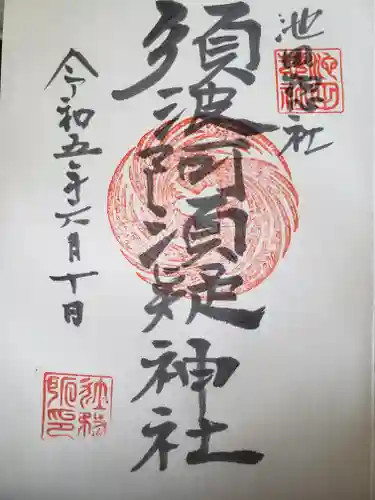 池田總社
須波阿湏疑神社
令和五年六月十日